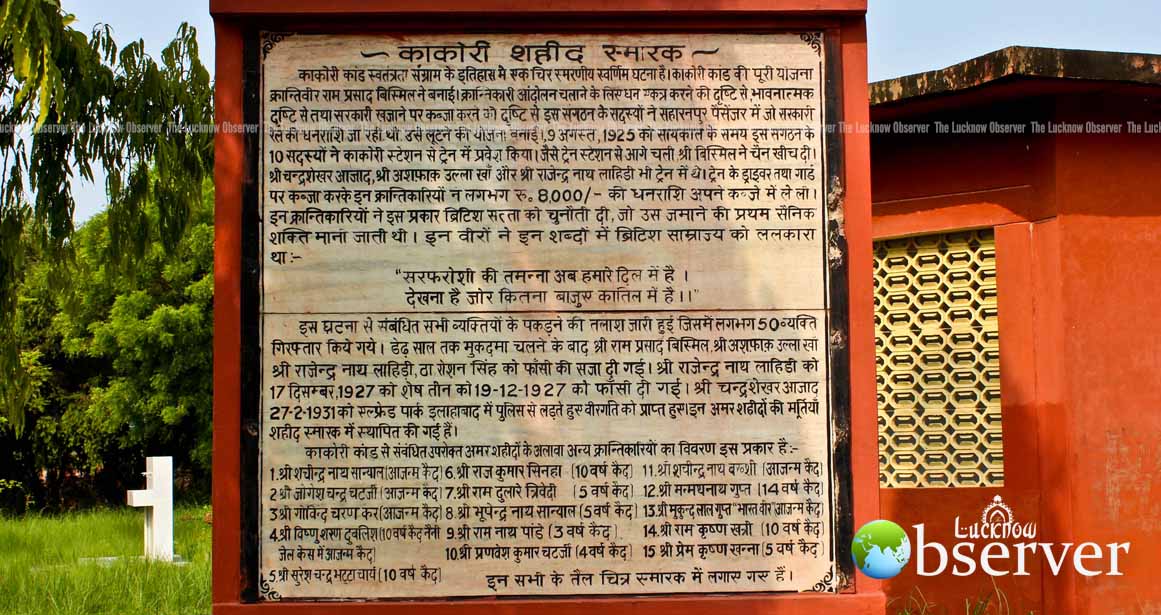 काकोरी शहीद स्मारक
काकोरी कांड स्वतंत्रता संग्राम के इतिहास मे एक चिर स्मरणीय स्वर्णिम घटना है। काकोरी कांड की पूरी योजना
क्रान्तिवीर राम प्रसाद बिस्मिल ने बनाई। क्रान्तिकारी आंदोलन चलाने के लिए धन एकत्र करने की दृष्टि से, भावनात्मक
दृष्टि से तथा सरकारी खजाने पर कब्जा करने की दृष्टि से इस संगठन के सदस्यों ने सहारनपुर पैसेंजर में जो सरकारी
रेल की धनराशि जा रही थी उसे लूटने की योजना बनाई। 9 अगस्त, 1925 को सायंकाल के समय इस संगठन के
10 सदस्यों ने काकोरी स्टेशन से ट्रेन में प्रवेश किया। जैसे ट्रेन स्टेशन से आगे चली श्री बिस्मिल ने चेन खींच दी।
श्री चन्द्रशेखर आजाद, श्री अशफ़ाक़ उल्ला खाँ और श्री राजेन्द्र नाथ लाहिडी भी ट्रेन में थे। ट्रेन के ड्राइवर तथा गार्ड
पर कब्जा करके इन क्रान्तिकारियों ने लगभग रु. 8,000/- की धनराशि अपने कब्जे में ले ली।
इन क्रान्तिकारियों ने इस प्रकार ब्रिटिश सत्ता को चुनौती दी, जो उस जमाने की प्रथम सैनिक
शक्ति मानी जाती थी। इन वीरों ने इन शब्दों में ब्रिटिश साम्राज्य को ललकारा
था:-
"सरफरोशी की तमन्ना अब हमारे दिल में है ।
देखना है ज़ोर कितना बाजुए कातिल में है।।"
इस घटना से संबंधित सभी व्यक्तियों के पकड़ने की तलाश जारी हुई जिसमें लगभग 50 व्यक्ति
गिरफ्तार किये गये। डेढ़ साल तक मुकदमा चलने के बाद श्री राम प्रसाद बिस्मिल, श्री अशफ़ाक़ उल्ला खाँ
श्री राजेन्द्र नाथ लाहिड़ी, ठा. रोशन सिंह को फाँसी की सजा दी गई। श्री राजेन्द्र नाथ लाहिडी को
17 दिसम्बर, 1927 को शेष तीन को 19-12-1927 को फाँसी दी गई। श्री चन्द्रशेखर आजाद
27-2-1931 को एल्फ्रेड पार्क इलाहाबाद में पुलिस से लड़ते हुए वीरगति को प्राप्त हुए। इन अमर शहीदों की मूर्तियाँ
शहीद स्मारक में स्थापित की गई हैं।
काकोरी कांड से संबंधित उपरोक्त अमर शहीदों के अलावा अन्य क्रान्तिकारियों का विवरण इस प्रकार है:-
1. श्री शचीन्द्र नाथ सान्याल (आजन्म कैद)
2 श्री जोगेश चन्द्र चटर्जी (आजन्म कैद)
3 श्री गोविन्द चरण कर (आजन्म कैद)
4. श्री विष्णु शरण दुबलिश (10 वर्ष कैद नैनी
जेल केस में आजन्म कैद)
5. श्री सुरेश चन्द्र भट्टाचार्य (10 वर्ष कैद)
6. श्री राज कुमार सिनहा (10 वर्ष कैद)
7. श्री राम दुलारे त्रिवेदी (5 वर्ष कैद)
8. श्री भूपेन्द्र नाथ सान्याल (5 वर्ष कैद)
9. श्री राम नाथ पांडे (3 वर्ष कैद)
10. श्री प्रणवेश कुमार चटर्जी (4 वर्ष कैद)
11. श्री शचीन्द्र नाथ बख्शी (आजन्म कैद)
12. श्री मन्मथनाथ गुप्त (14 वर्ष कैद)
13 श्री मुकुन्द लाल गुप्त "भारत वीर" (आजन्म कैद)
14. श्री राम कृष्ण खत्री (10 वर्ष कैद)
15 श्री प्रेम कृष्ण खन्ना (5 वर्ष कैद)
इन सभी के तैल चित्र स्मारक में लगाए गए हैं।
The Lucknow Observer The Lucknow Observer The Lucknow Observer The Lucknow Observer
Lucknow
Observer